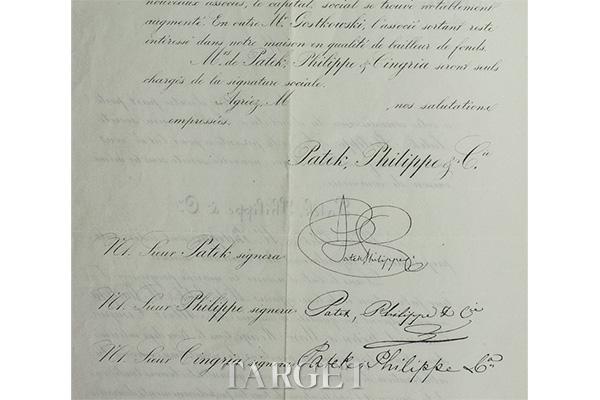 nouveaux associés, le capital social se trouve notablement
augmenté. En outre Mr. Gostkowski, l'associé sortant reste
intéressé dans notre maison en qualité de bailleur de fonds.
Mrs. de Patek, Philippe & Cingria seront seuls
chargés de la signature sociale.
Agréez, M , nos salutations
empressées.
Patek, Philippe & Cie
Patek Philippe & Cie
N/. Sieur Patek signera
Patek Philippe Cie
N/. Sieur Philippe signera Patek, Philippe & Cie
N/. Sieur Cingria signera Patek, Philippe & Cie
TARGET